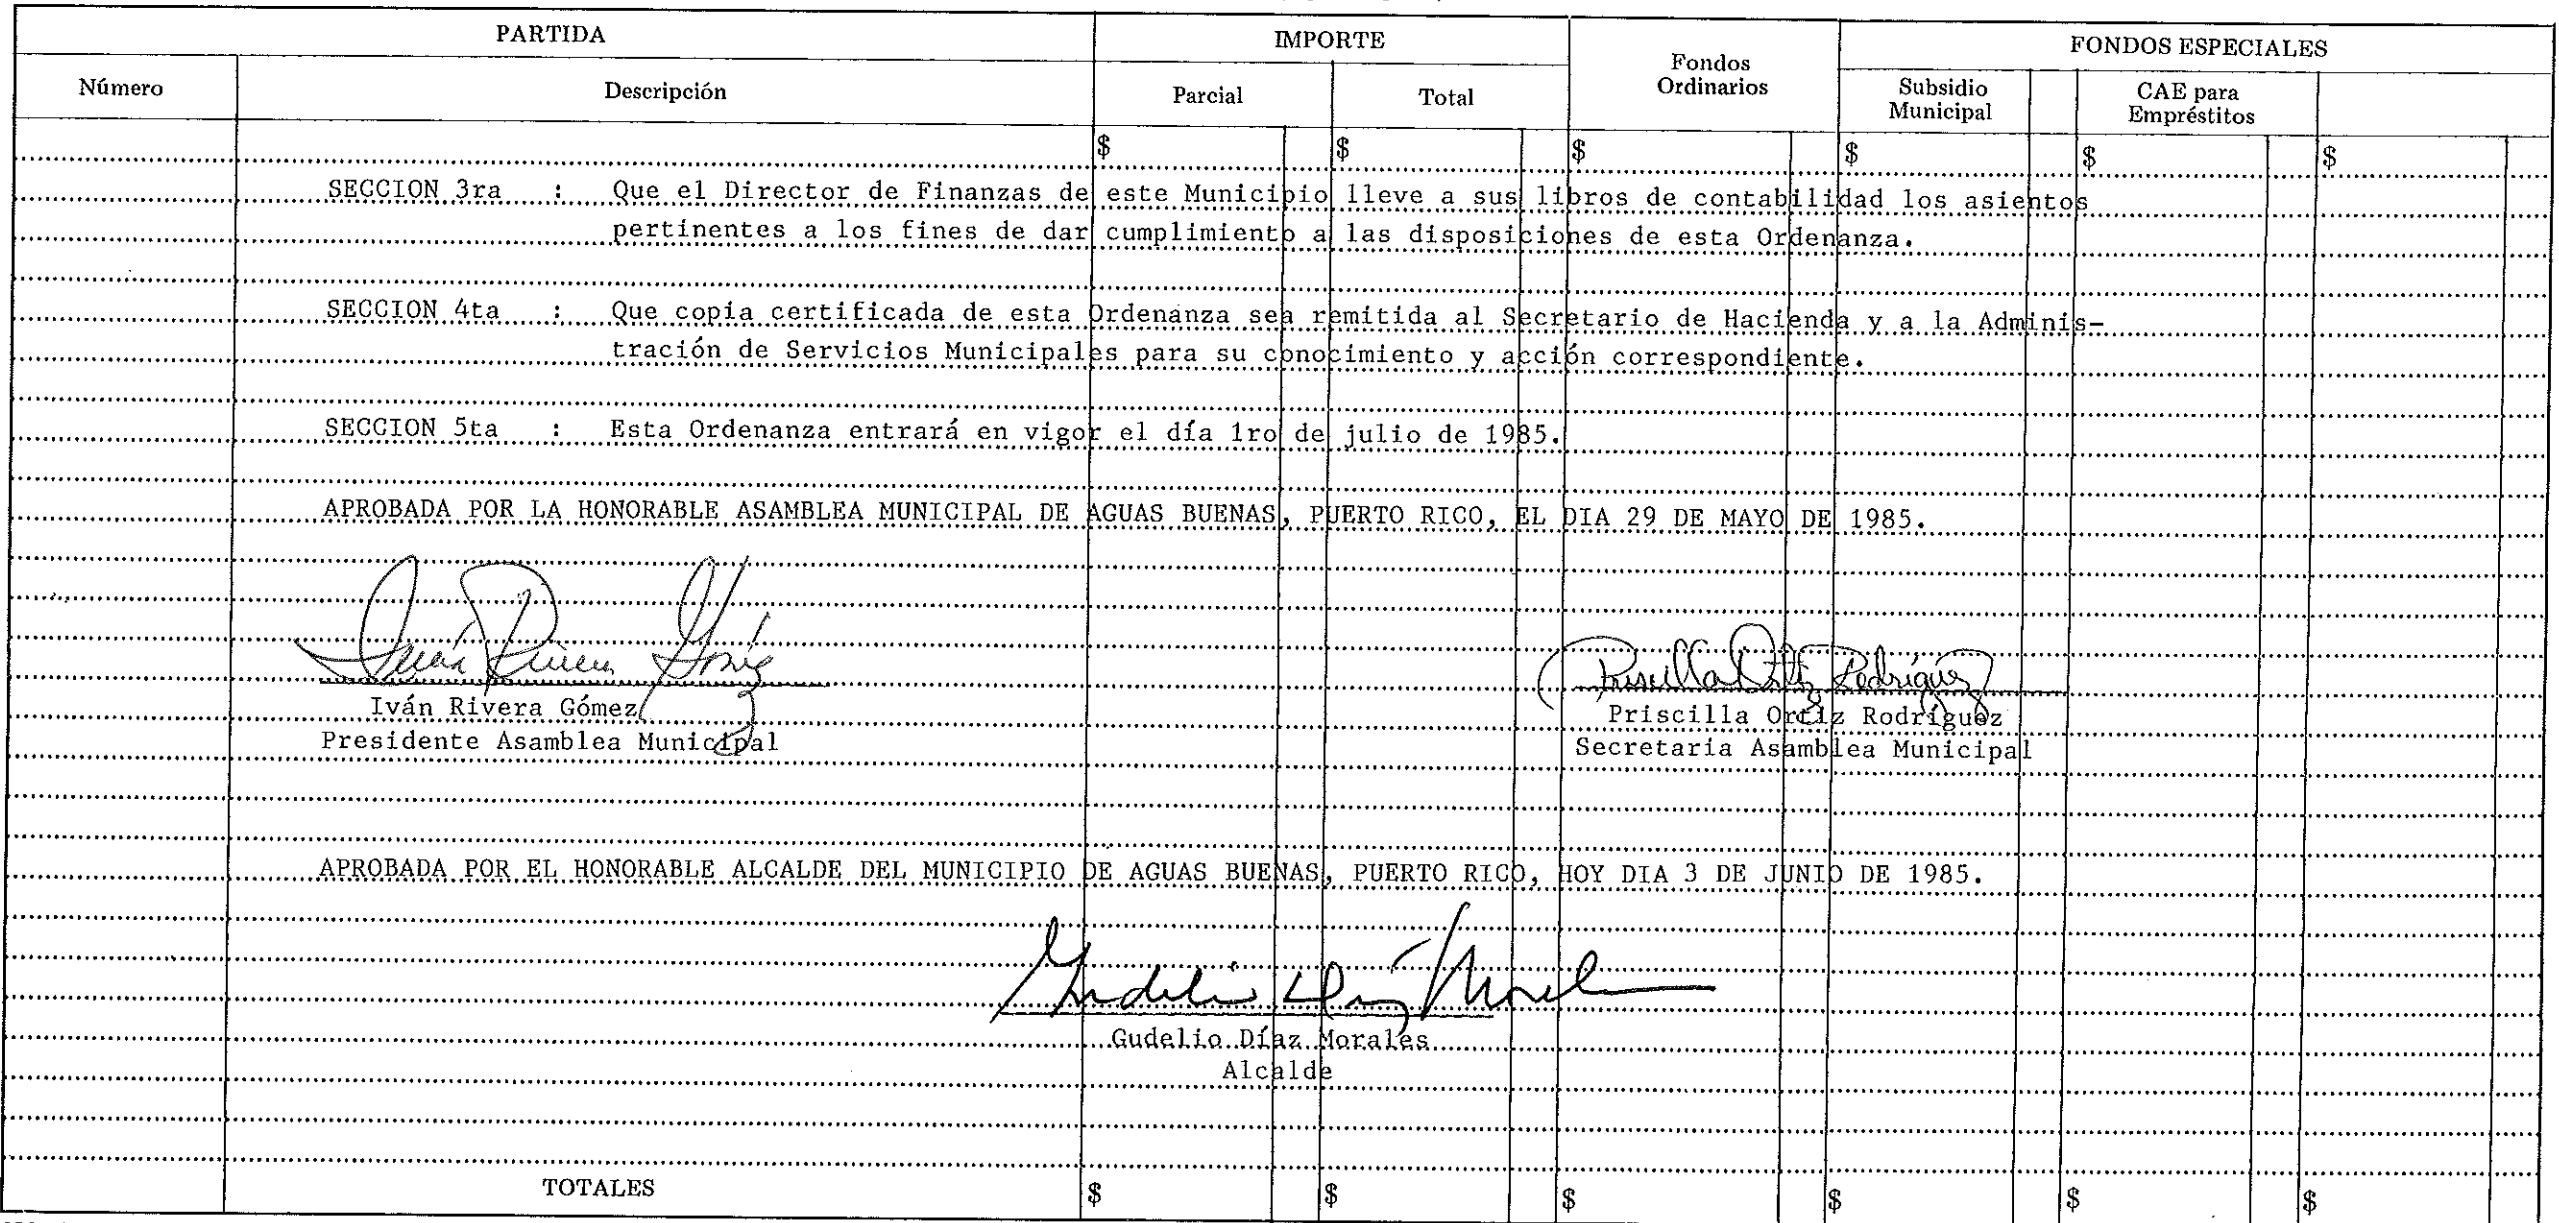 PARTIDA IMPORTE Fondos Ordinarios FONDOS ESPECIALES
Número Descripción Parcial Total Subsidio Municipal CAE para Empréstitos
$ $ $ $ $ $
SECCION 3ra : Que el Director de Finanzas de este Municipio lleve a sus libros de contabilidad los asientos
pertinentes a los fines de dar cumplimiento a las disposiciones de esta Ordenanza.
SECCION 4ta : Que copia certificada de esta Ordenanza sea remitida al Secretario de Hacienda y a la Adminis-
tración de Servicios Municipales para su conocimiento y acción correspondiente.
SECCION 5ta : Esta Ordenanza entrará en vigor el día 1ro de julio de 1985.
APROBADA POR LA HONORABLE ASAMBLEA MUNICIPAL DE AGUAS BUENAS, PUERTO RICO, EL DIA 29 DE MAYO DE 1985.
Iván Rivera Gómez Priscilla Ortiz Rodríguez
Iván Rivera Gómez Priscilla Ortiz Rodríguez
Presidente Asamblea Municipal Secretaria Asamblea Municipal
APROBADA POR EL HONORABLE ALCALDE DEL MUNICIPIO DE AGUAS BUENAS, PUERTO RICO, HOY DIA 3 DE JUNIO DE 1985.
Gudelio Díaz Morales
Gudelio Díaz Morales
Alcalde
TOTALES $ $ $ $ $ $